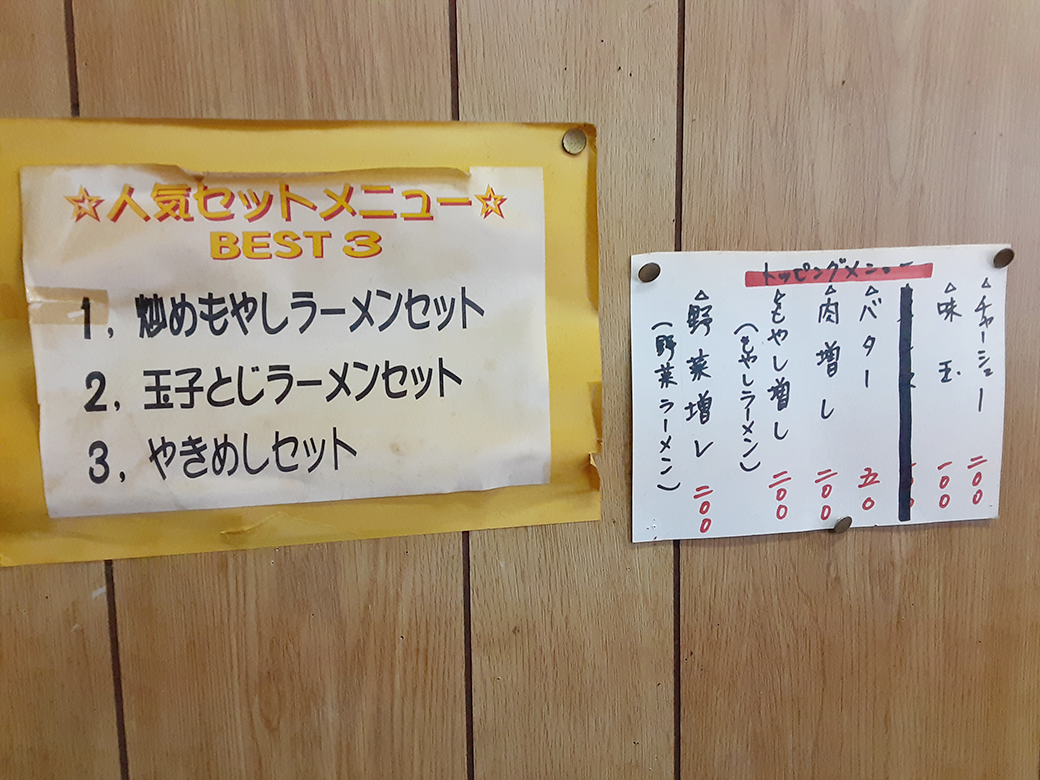 ☆人気セットメニュー☆
BEST 3
1, 炒めもやしラーメンセット
2, 玉子とじラーメンセット
3, やきめしセット
トッピングメニュー
△チャーシュー 二〇〇
△味玉 一〇〇
△バター 五〇
△肉増し 二〇〇
△もやし増し 二〇〇
(もやしラーメン)
△野菜増し 二〇〇
(野菜ラーメン)